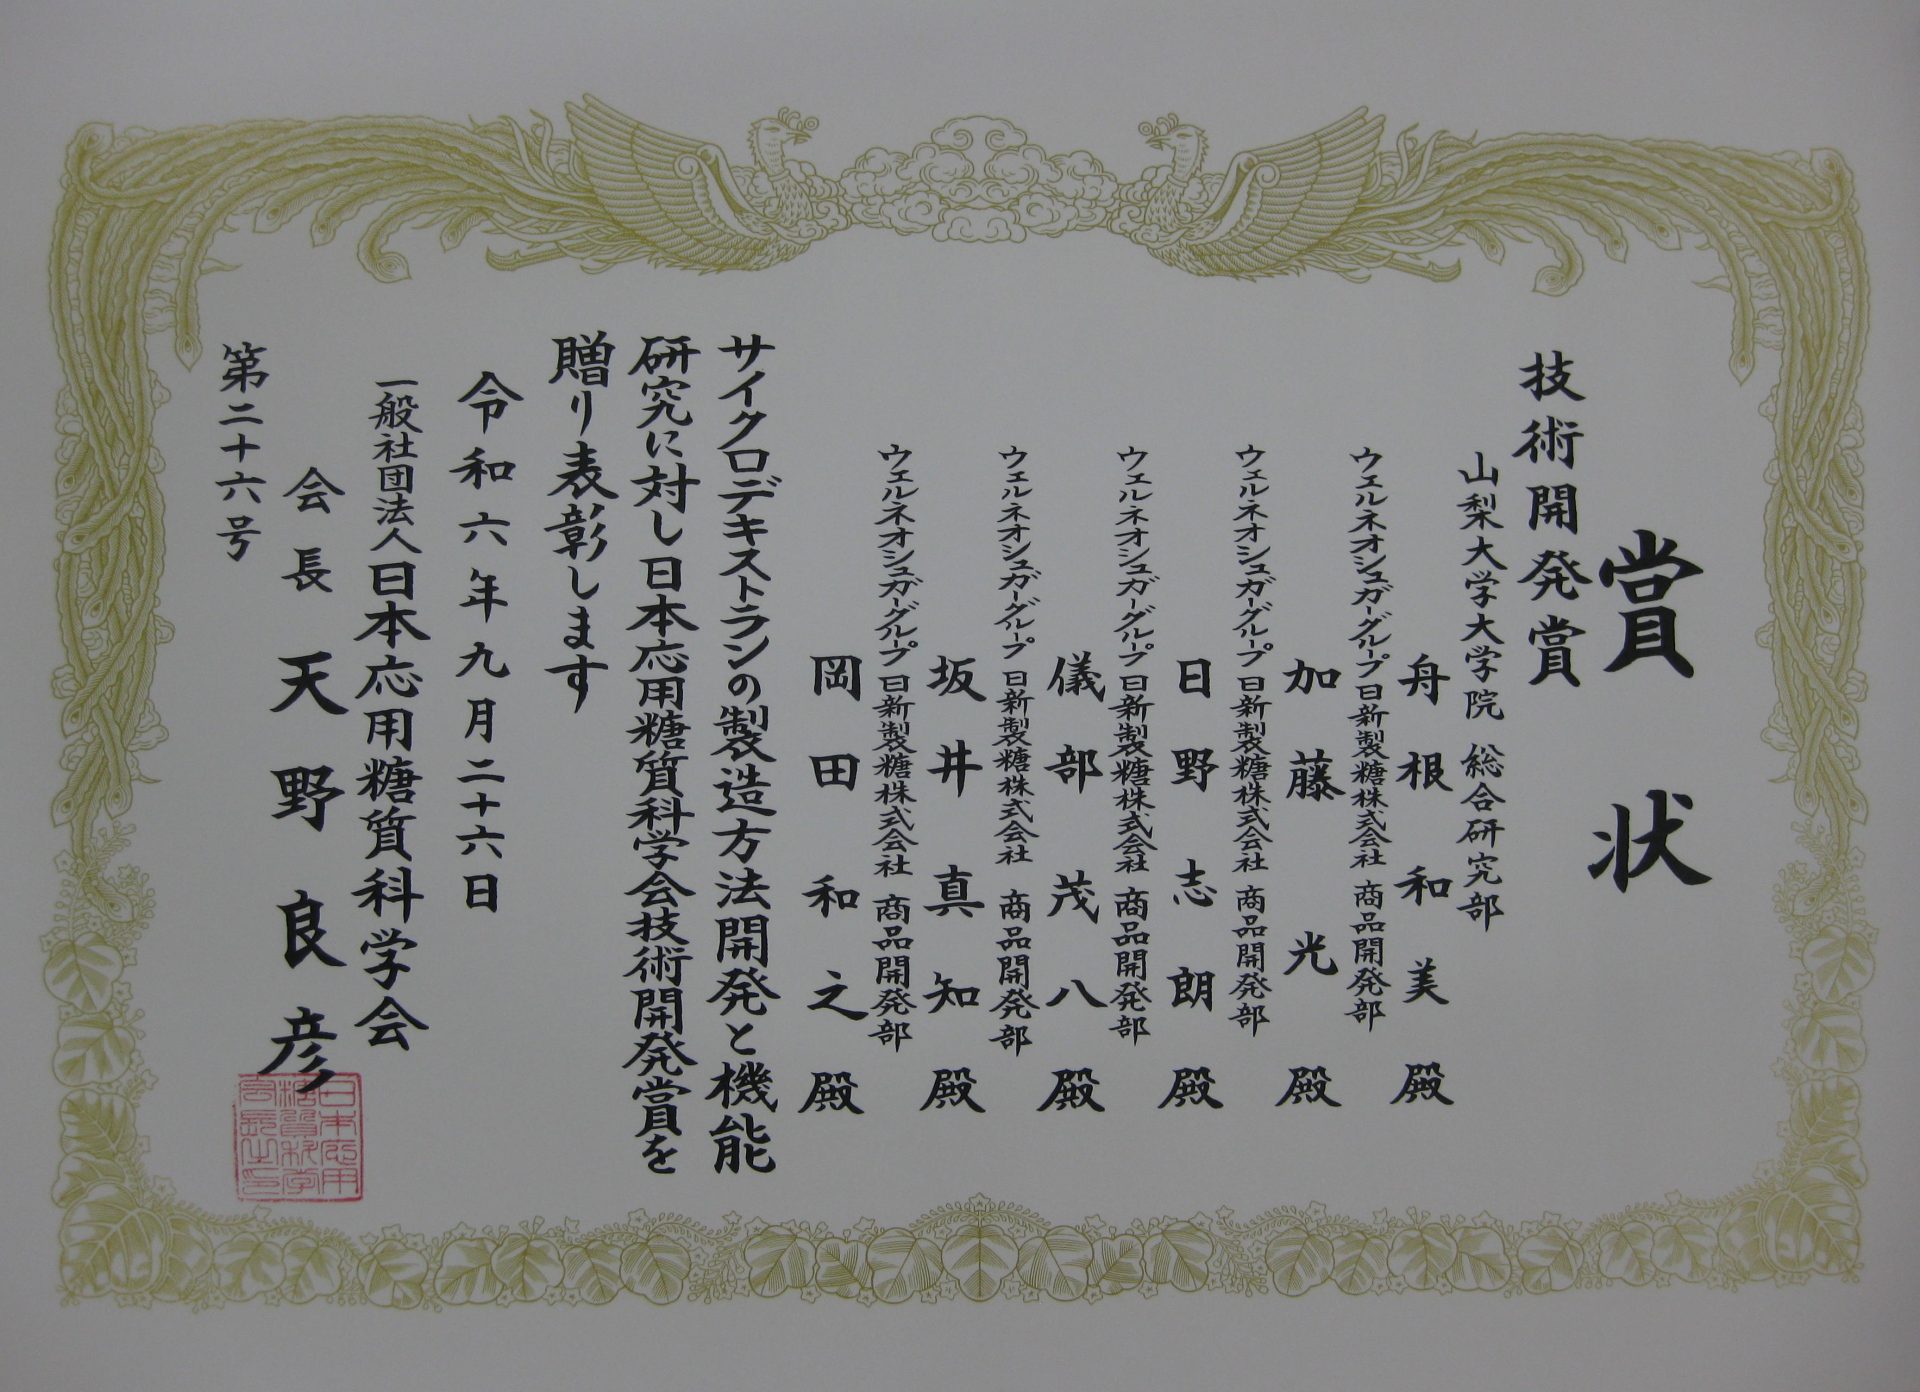 賞状
技術開発賞
山梨大学大学院 総合研究部
舟根和美 殿
ウェルネオシュガーグループ 日新製糖株式会社 商品開発部
加藤光 殿
ウェルネオシュガーグループ 日新製糖株式会社 商品開発部
日野志朗 殿
ウェルネオシュガーグループ 日新製糖株式会社 商品開発部
儀部茂八 殿
ウェルネオシュガーグループ 日新製糖株式会社 商品開発部
坂井真知 殿
ウェルネオシュガーグループ 日新製糖株式会社 商品開発部
岡田和之 殿
サイクロデキストランの製造方法開発と機能
研究に対し日本応用糖質科学会技術開発賞を
贈り表彰します
令和六年九月二十六日
一般社団法人日本応用糖質科学会
会長 天野良彦
日本応用
糖質科学
会長之印
第二十六号